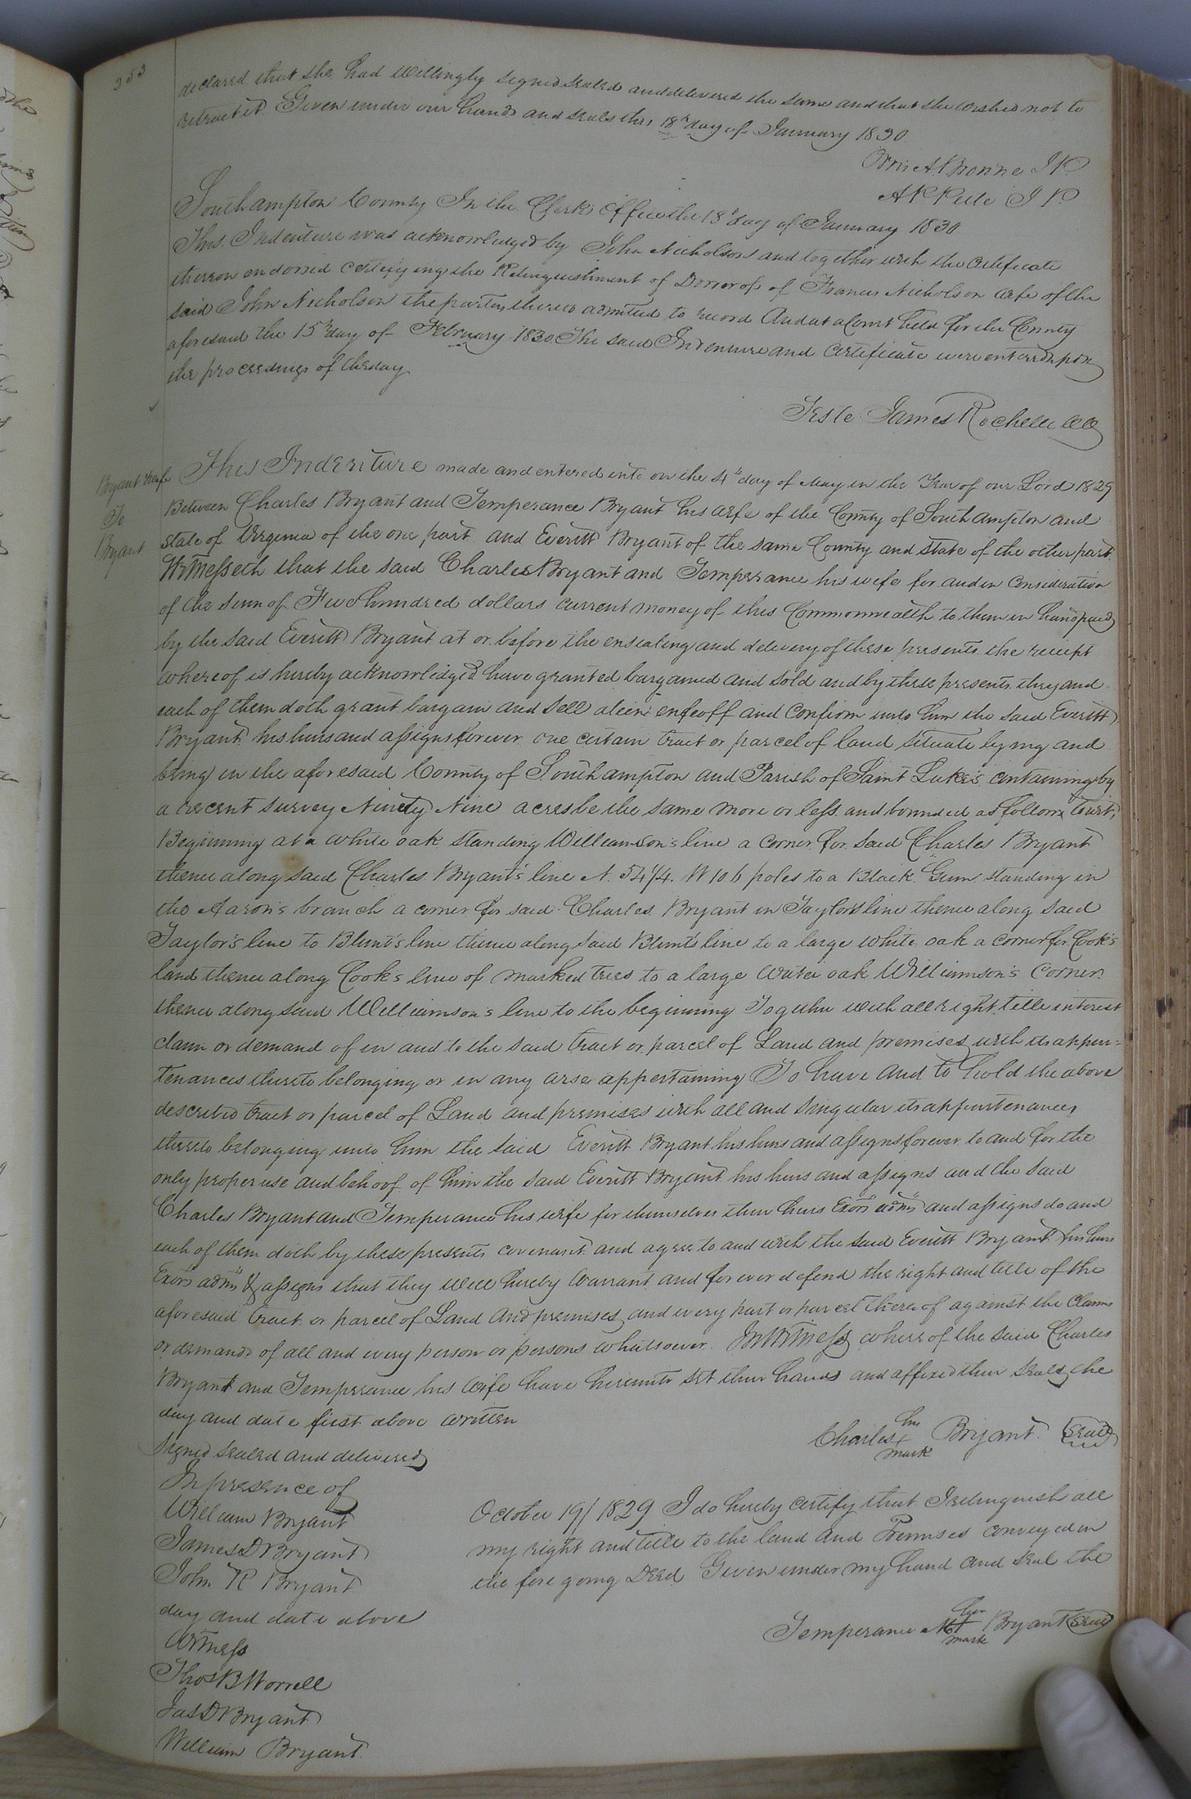 253
declared that she had willingly signed sealed and delivered the same and that she wished not to
retract it Given under our hands and seals this 18th day of January 1830
Orris A Browne J P
J P
Southampton County In the Clerks Office the 18th day of January 1830
This Indenture was acknowledged by John Nicholson and together with the Certificate
thereon endorsed certifying the Relinquishment of Dower of Frances Nicholson wife of the
said John Nicholson the parties thereto admitted to record And at a Court held for the County
aforesaid the 15th day of February 1830 The said Indenture and Certificate were entered upon
the proceedings of the day
Teste James Rochelle CC
Bryant & wife
To
Bryant
This Indenture made and entered into on the 4th day of May in the Year of our Lord 1829
Between Charles Bryant and Temperance Bryant his wife of the County of Southampton and
state of Virginia of the one part and Everitt Bryant of the same County and state of the other part
Witnesseth that the said Charles Bryant and Temperance his wife for and in Consideration
of the sum of Two hundred dollars current money of this Commonwealth to them in hand paid
by the said Everitt Bryant at or before the ensealing and delivery of these presents the receipt
whereof is hereby acknowledged have granted bargained and sold and by these presents they and
each of them doth grant bargain and sell alien enfeoff and confirm unto him the said Everitt
Bryant his heirs and assigns forever one certain tract or parcel of land situate lying and
being in the aforesaid County of Southampton and Parish of Saint Luke's containing by
a recent survey Ninety Nine acres be the same more or less and bounded as follows (to wit,
Beginning at a white oak standing Williamson's line a corner for said Charles Bryant
thence along said Charles Bryant's line N. 54 1/4. W 106 poles to a Black Gum standing in
the Aaron's branch a corner for said Charles Bryant in Taylor's line thence along said
Taylor's line to Blunt's line thence along said Blunt's line to a large white oak a corner for Cook's
land thence along Cook's line of marked trees to a large water oak Williamson's Corner
thence along said Williamson's line to the beginning Together with all right title interest
claim or demand of in and to the said tract or parcel of Land and premises with its appur=
tenances thereto belonging or in any wise appertaining To have and to hold the above
described tract or parcel of Land and premises with all and singular its appurtenances
thereto belonging unto him the said Everitt Bryant his heirs and assigns forever to and for the
only proper use and behoof of him the said Everitt Bryant his heirs and assigns and the said
Charles Bryant and Temperance his wife for themselves their heirs Exors admrs and assigns do and
each of them doth by these presents covenant and agree to and with the said Everitt Bryant his heirs
Exors admrs & assigns that they will hereby warrant and forever defend the right and title of the
aforesaid tract or parcel of Land and premises and every part or parcel thereof against the claims
or demands of all and every person or persons whatsoever. In Witness whereof the said Charles
Bryant and Temperance his wife have hereunto set their hands and affixed their seals the
day and date first above written
Signed sealed and delivered
In presence of
William Bryant
James D Bryant
John R Bryant
his
Charles + Bryant Seal
mark
October 19/ 1829 I do hereby certify that I relinquish all
my right and title to the land and Premises conveyed in
the fore going Deed Given under my hand and seal the
day and date above
Witness
Thos B Worrell
Jas D Bryant
William Bryant
her
Temperance + Bryant Seal
mark